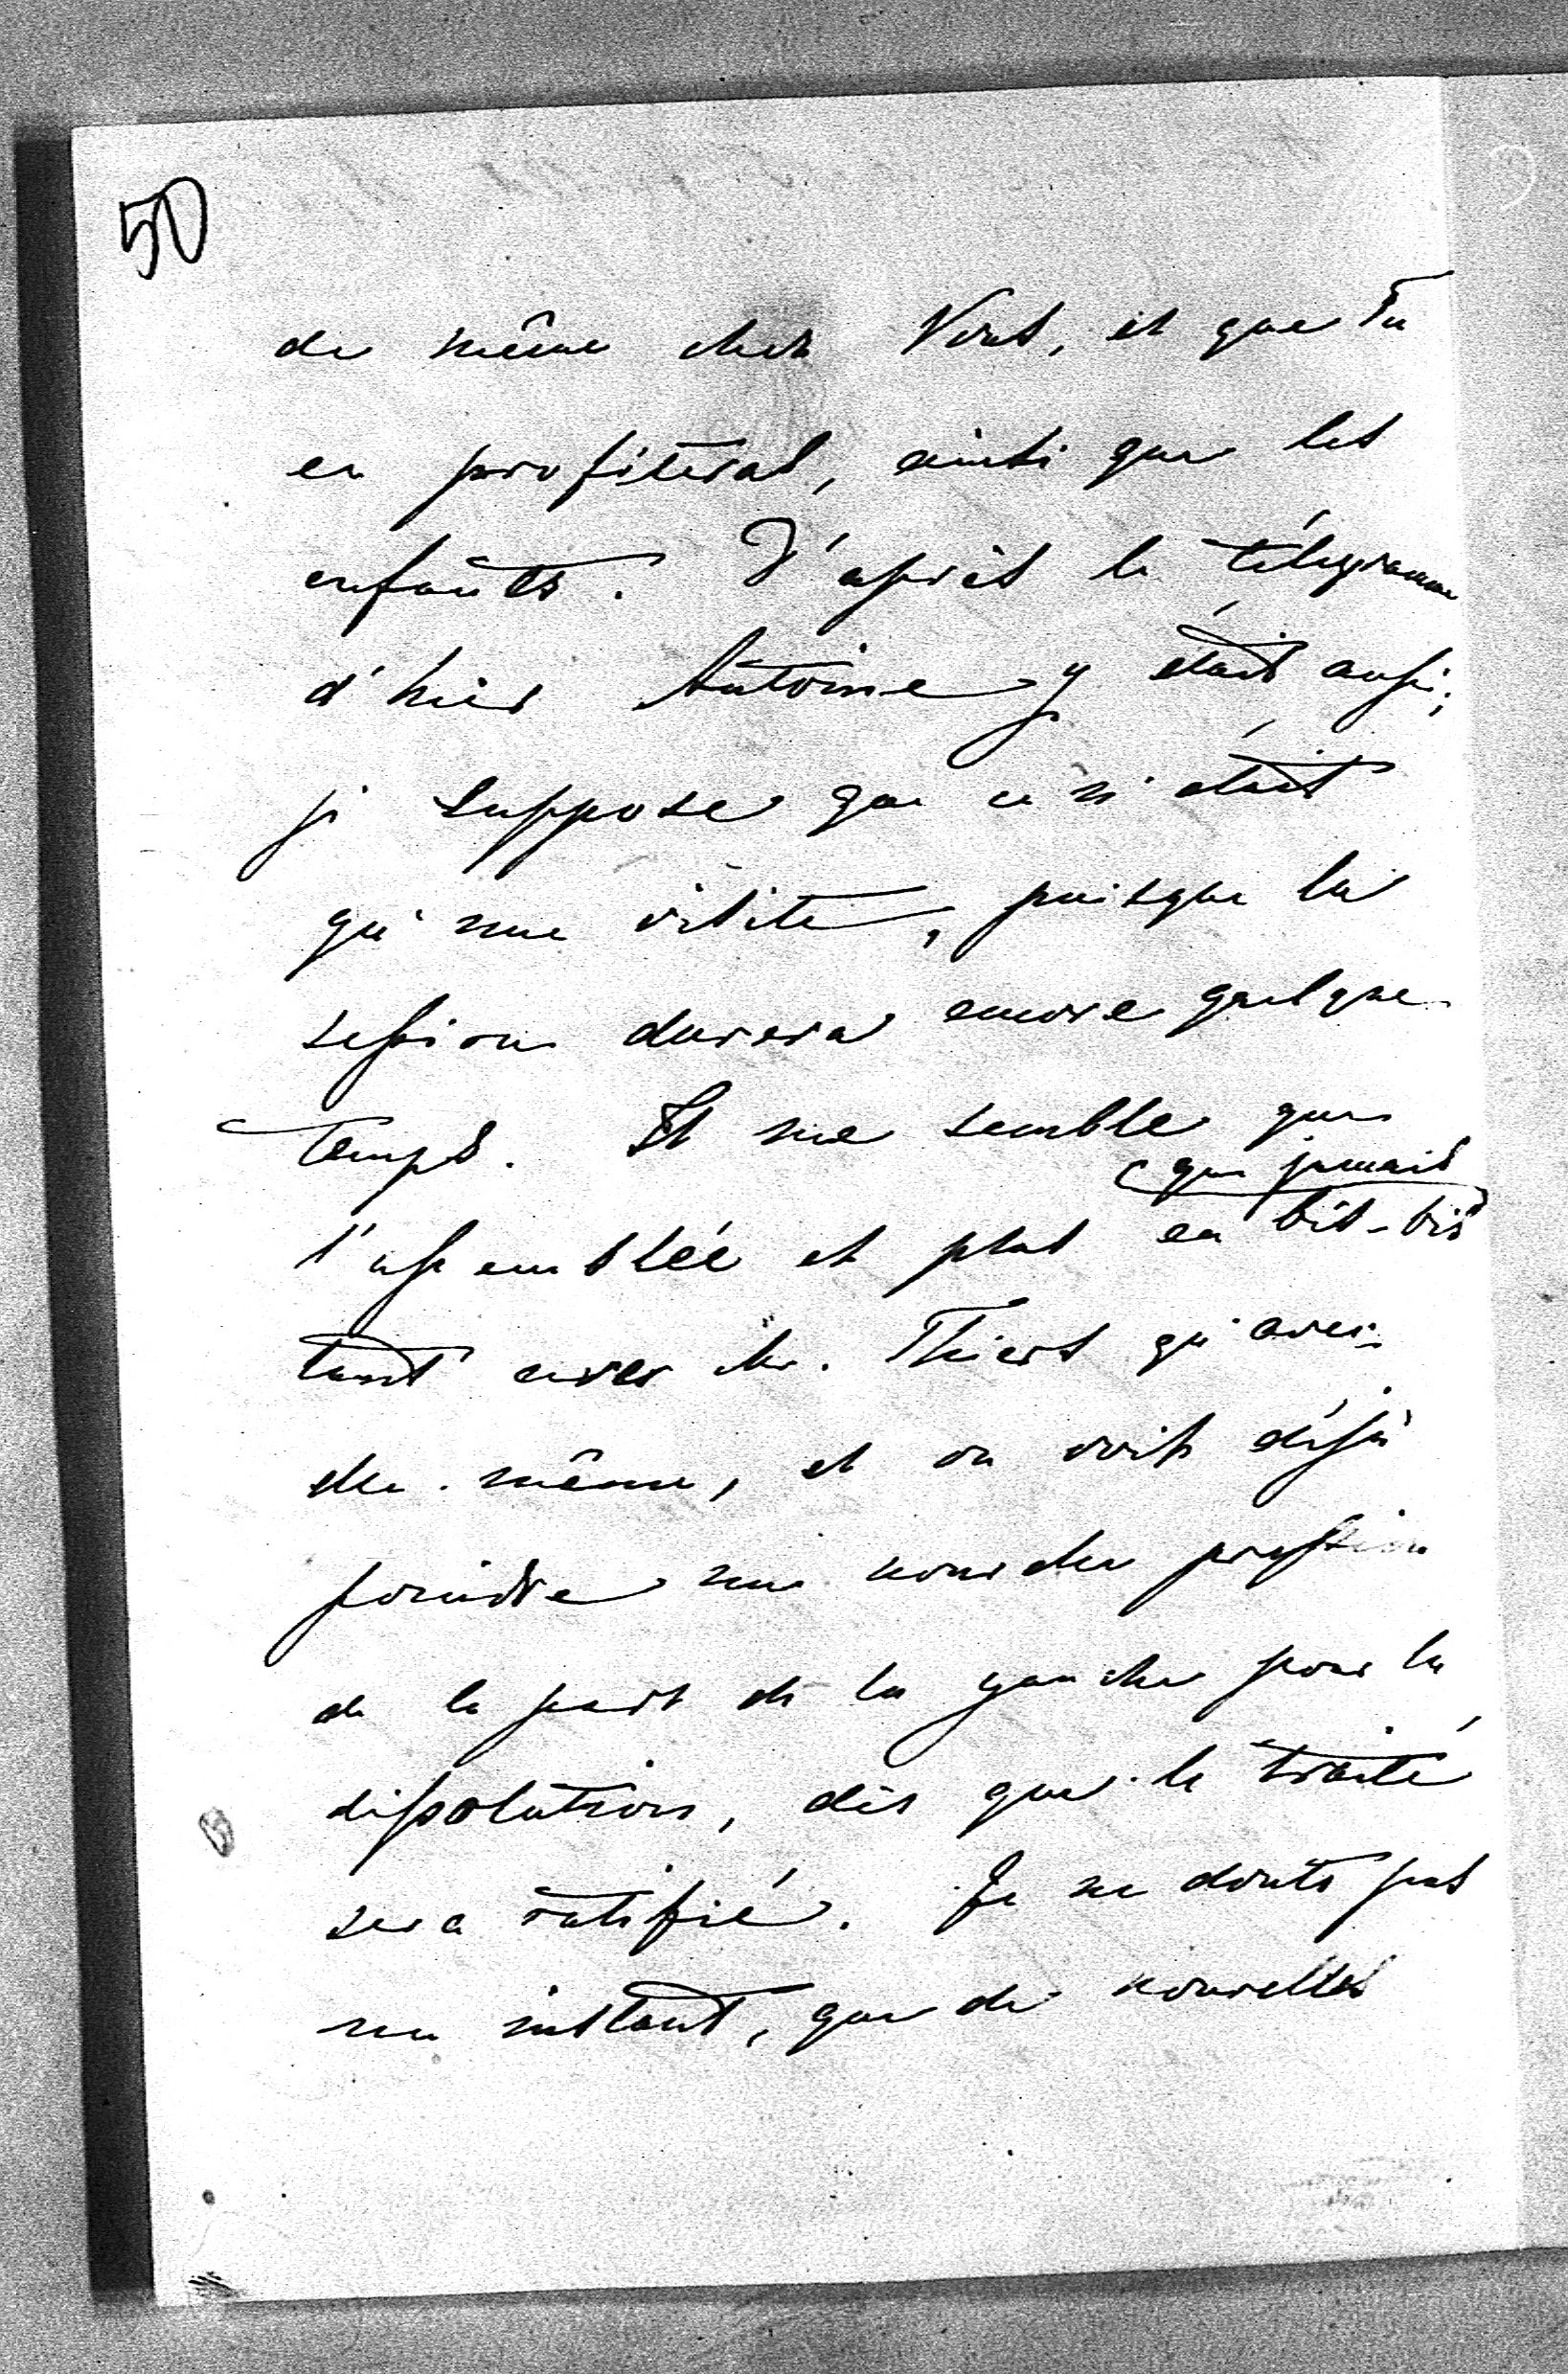 50
de même chez Vous, et que Tu
en profiteras, ainsi que les
enfants. D'après le télégramme
d'hier Antoine y était aussi;
je suppose que ce n'était
qu'une visite, puisque la
session durera encore quelque
temps. Il me semble que
que jamais
l'assemblée est plus en bis-bis
tant avec Mr. Thiers qu'avec
elle même, et on voit déjà
poindre une nouvelle pression
de la part de la gauche pour la
dissolution, dès que le traité
sera ratifié. Je ne doute pas
un instant, que de nouvelles